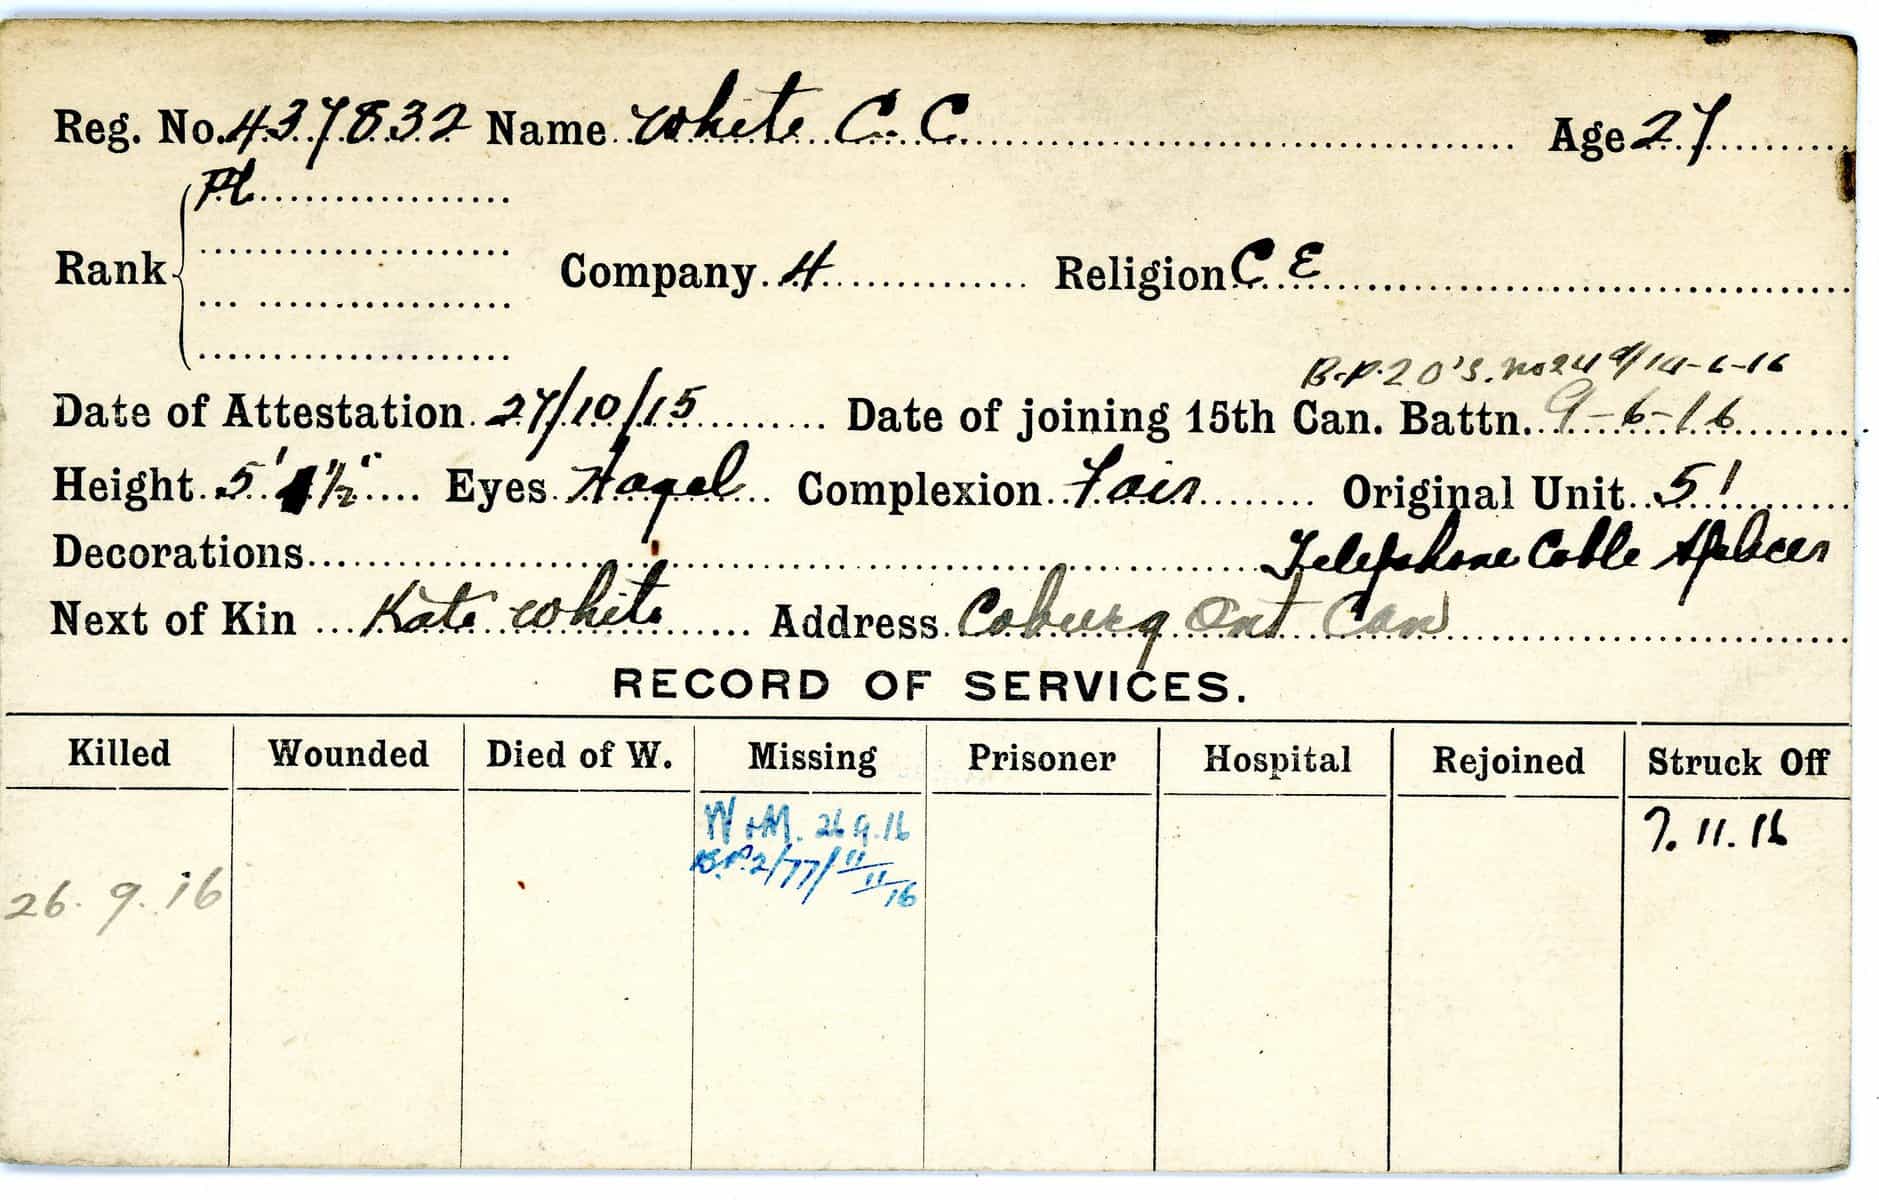 Reg. No. 437832 Name White C. C. Age 27
Pt.
Rank Company 4 Religion C E
B.P.2 O's. No 249/14-6-16
Date of Attestation 27/10/15 Date of joining 15th Can. Battn. 9-6-16
Height 5' 1½" Eyes Hazel Complexion Fair Original Unit 51
Decorations Telephone Cable Splicer
Next of Kin Kate White Address Coburg Ont Can
RECORD OF SERVICES.
Killed Wounded Died of W. Missing Prisoner Hospital Rejoined Struck Off
W & M. 26 9.16 7. 11. 16
B.P.2/77/11/11/16
26. 9. 16